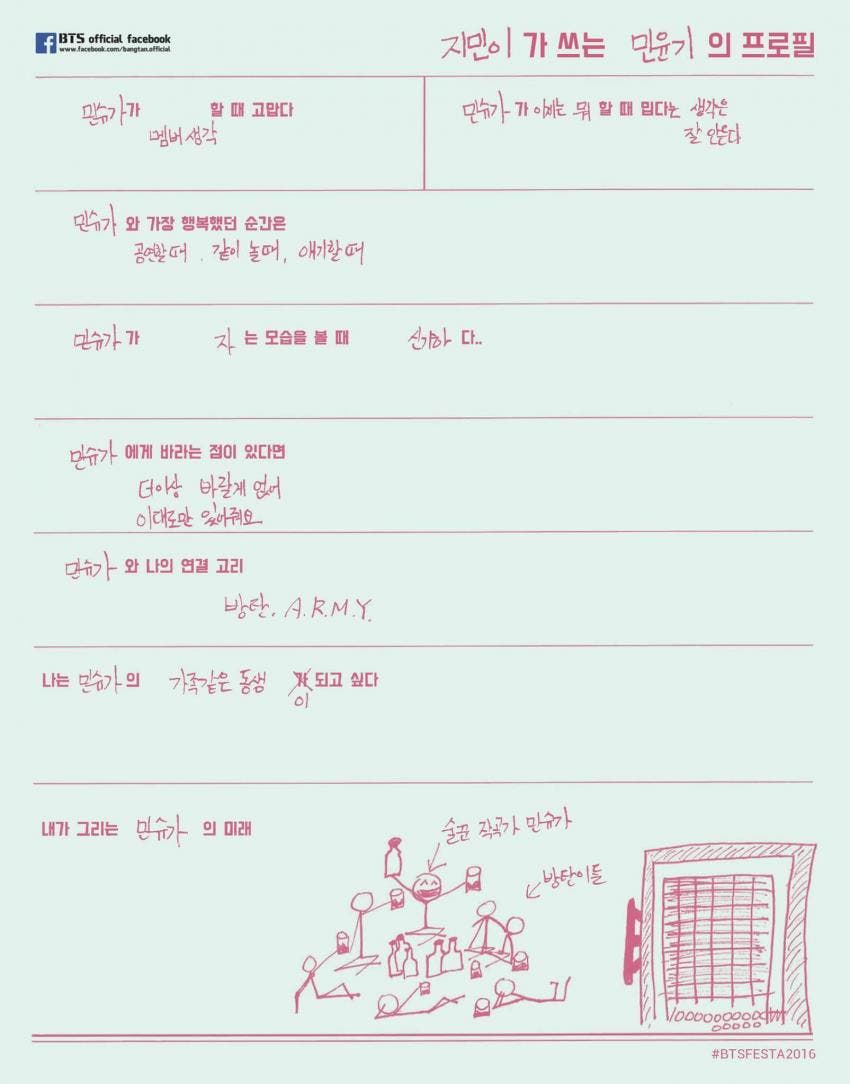 BTS official facebook
www.facebook.com/bangtan.official
지민이 가 쓰는 민윤기 의 프로필
민슈가가 할 때 고맙다
멤버 생각
민슈가 가 이제는 뭐 할 때 밉다는 생각은
잘 안든다
민슈가 와 가장 행복했던 순간은
공연할때 . 같이 놀때, 얘기할때
민슈가 가 자 는 모습을 볼 때 신기하 다..
민슈가 에게 바라는 점이 있다면
더이상 바랄게 없어
이대로만 있어줘요
민슈가 와 나의 연결 고리
방탄. A.R.M.Y.
나는 민슈가의 가족같은 동생 가 되고 싶다
이
내가 그리는 민슈가 의 미래
술꾼 작곡가 민슈가
방탄이들
#BTSFESTA2016